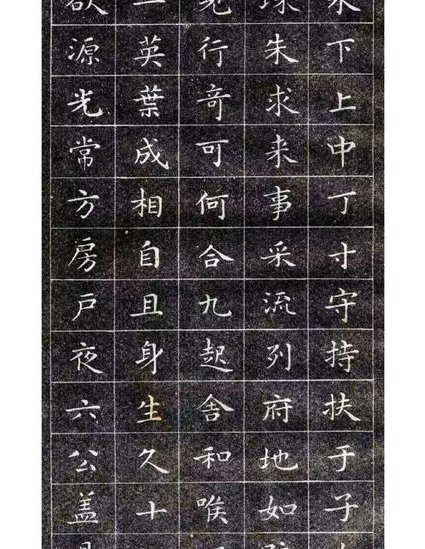 下上中丁寸守持扶于子
球朱求来事采流列府地如
行奇可何合九起舍和
英葉成相自且身生久十
欲源光常方房戶夜六公盖